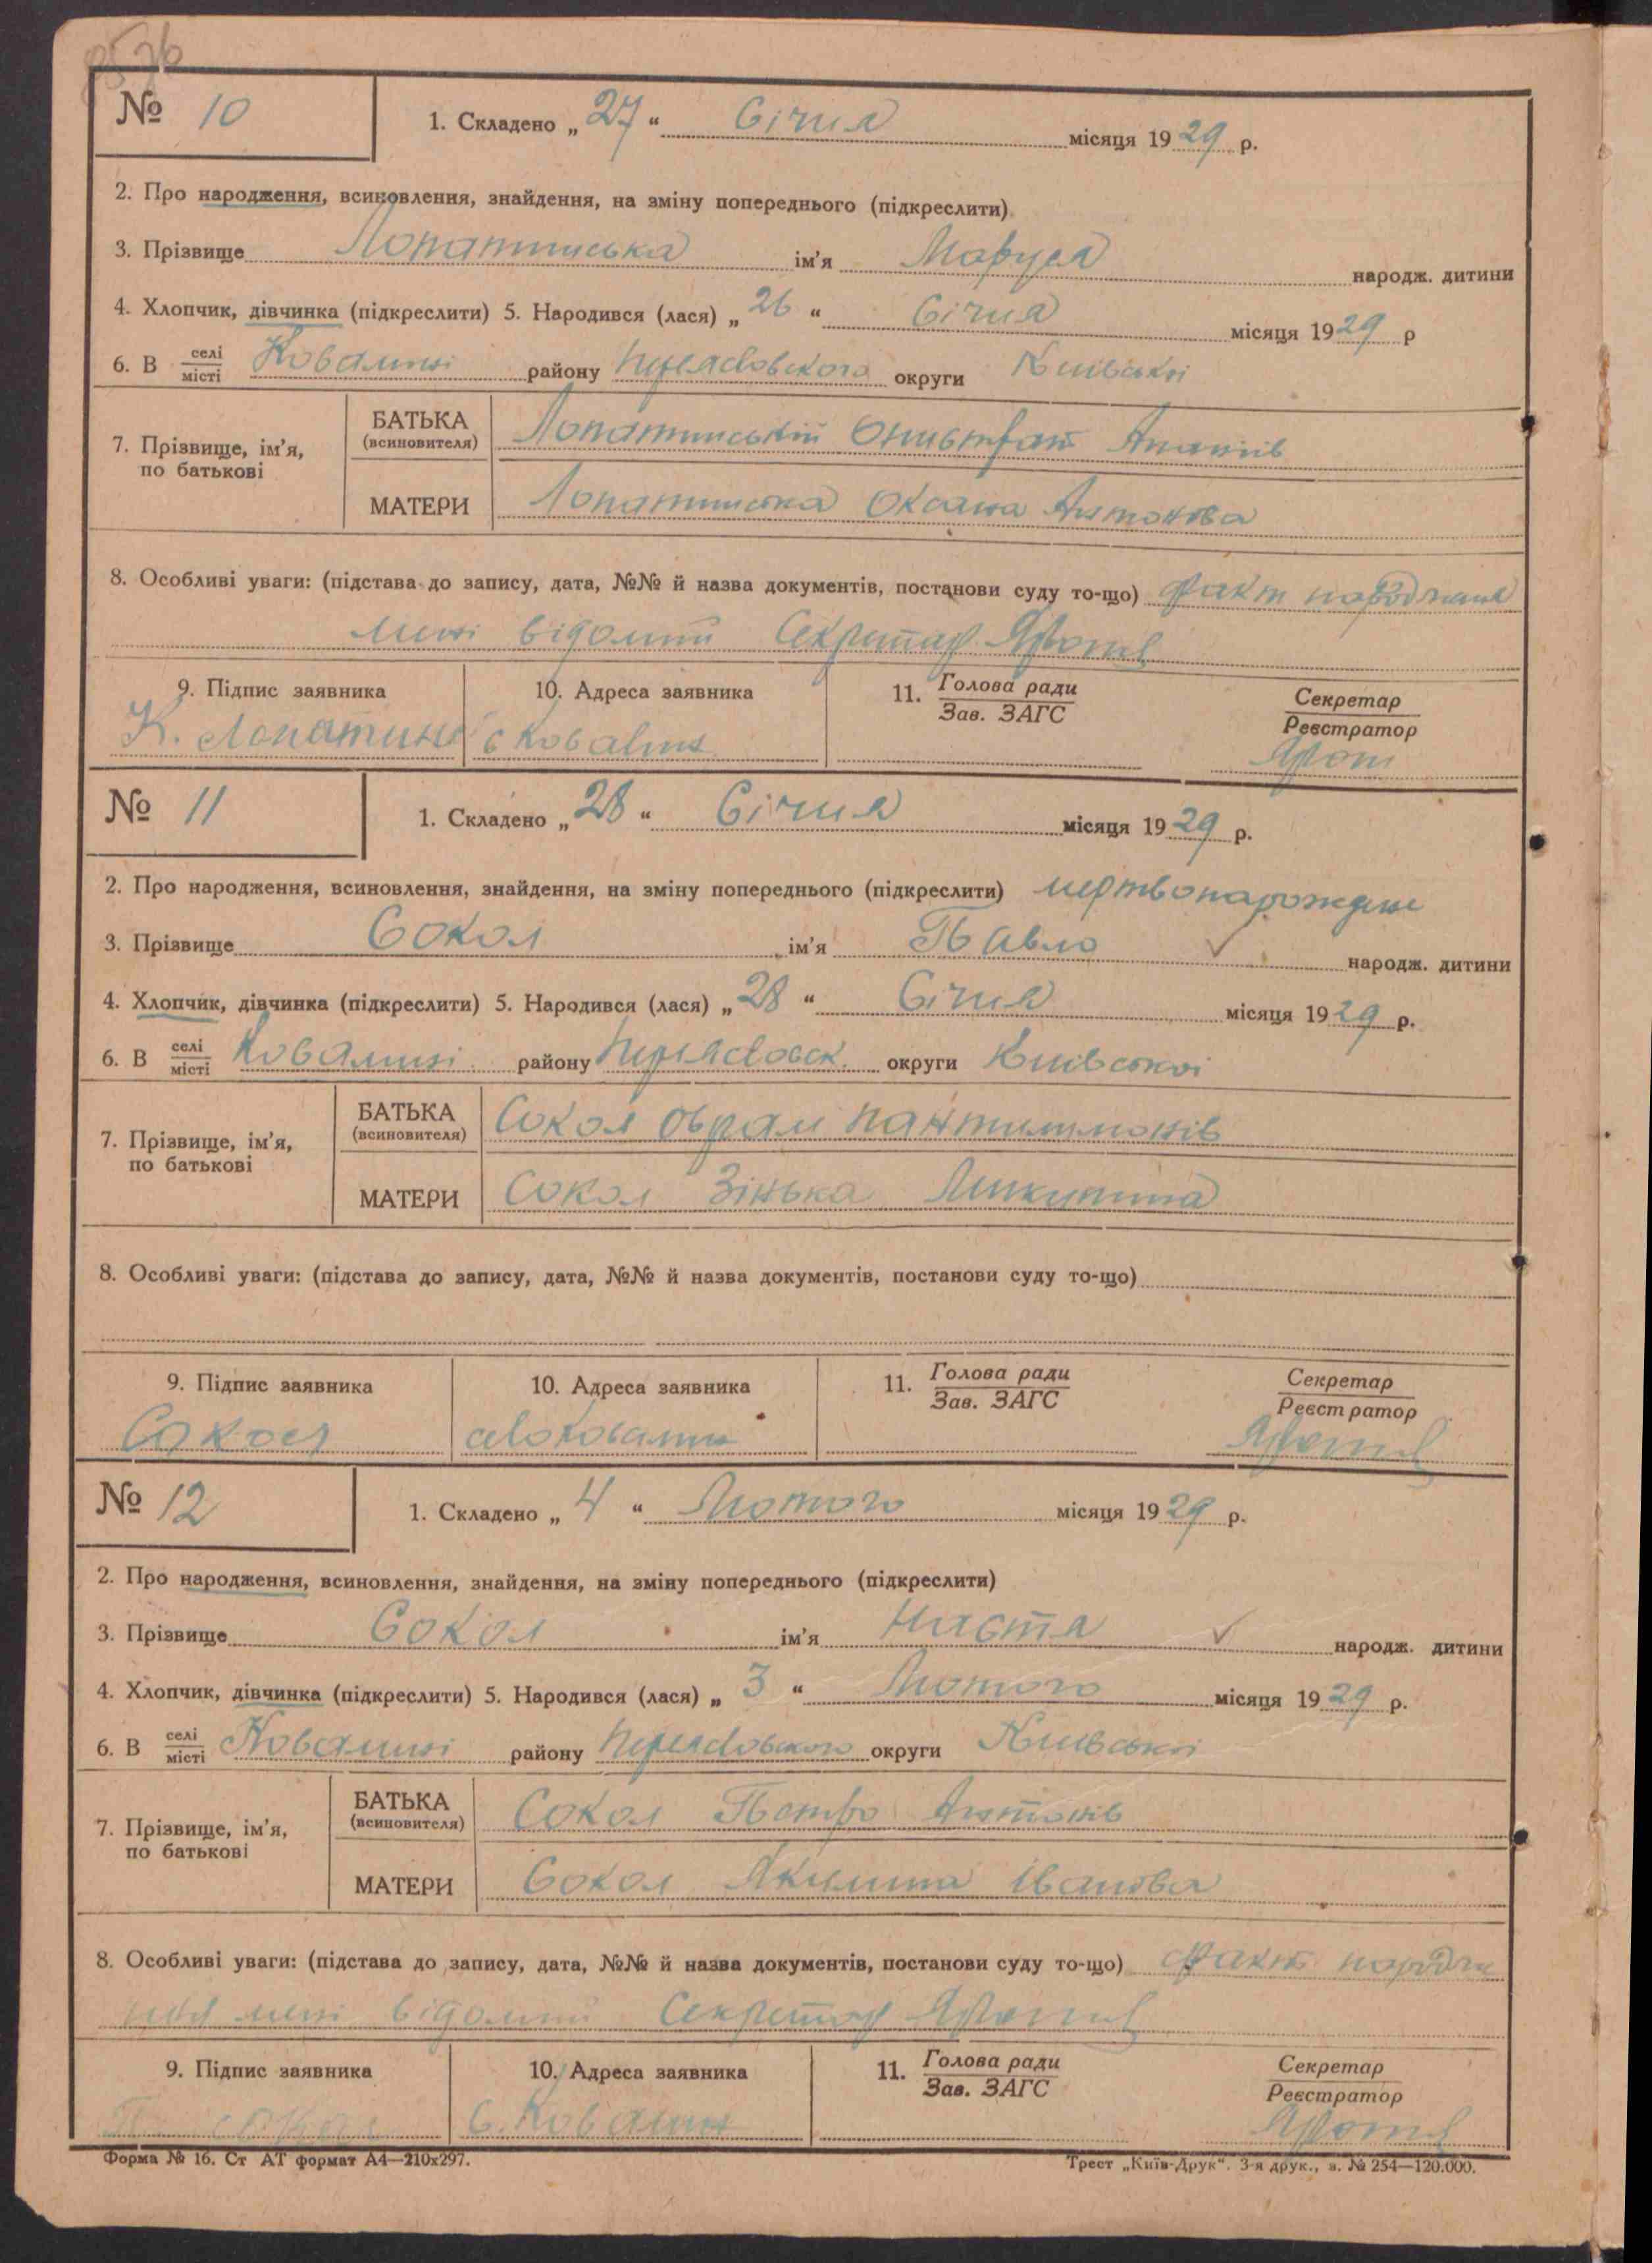 № 10
1. Складено „27“ Січня місяця 1929 р.
2. Про народження, всиновлення, знайдення, на зміну попереднього (підкреслити)
3. Прізвище Лопатинська ім’я Маруся народж. дитини
4. Хлопчик, дівчинка (підкреслити) 5. Народився (лася) „26“ Січня місяця 1929 р
6. В селі/місті Ковалині району Переясловского округи Київської
7. Прізвище, ім’я, по батькові
БАТЬКА (всиновителя) Лопатинський Онистрат
МАТЕРИ Лопатинська Оксана Антонова
8. Особливі уваги: (підстава до запису, дата, №№ й назва документів, постанови суду то-що) факт народження
мені відомий Секретар
9. Підпис заявника 10. Адреса заявника 11. Голова ради/Зав. ЗАГС Секретар/Реєстратор
К. Лопатинс с Ковалин
№ 11
1. Складено „28“ Січня місяця 1929 р.
2. Про народження, всиновлення, знайдення, на зміну попереднього (підкреслити) мертвонарождене
3. Прізвище Сокол ім’я Павло народж. дитини
4. Хлопчик, дівчинка (підкреслити) 5. Народився (лася) „28“ Січня місяця 1929 р.
6. В селі/місті Ковалині району Переясловск. округи Київської
7. Прізвище, ім’я, по батькові
БАТЬКА (всиновителя) Сокол Оврам Пантилимонів
МАТЕРИ Сокол Зінька Микитина
8. Особливі уваги: (підстава до запису, дата, №№ й назва документів, постанови суду то-що)
9. Підпис заявника 10. Адреса заявника 11. Голова ради/Зав. ЗАГС Секретар/Реєстратор
Сокол
№ 12
1. Складено „4“ Лютого місяця 1929 р.
2. Про народження, всиновлення, знайдення, на зміну попереднього (підкреслити)
3. Прізвище Сокол ім’я Настя народж. дитини
4. Хлопчик, дівчинка (підкреслити) 5. Народився (лася) „3“ Лютого місяця 1929 р.
6. В селі/місті Ковалині району Переясловского округи Київської
7. Прізвище, ім’я, по батькові
БАТЬКА (всиновителя) Сокол Петро Антонів
МАТЕРИ Сокол Якилина Іванова
8. Особливі уваги: (підстава до запису, дата, №№ й назва документів, постанови суду то-що) факт народже
ння мені відомий Секретар
9. Підпис заявника 10. Адреса заявника 11. Голова ради/Зав. ЗАГС Секретар/Реєстратор
П Сокол С. Ковалин
Форма № 16. Ст АТ формат А4—210х297. Трест „Київ-Друк“. 3-я друк., з. № 254—120.000.